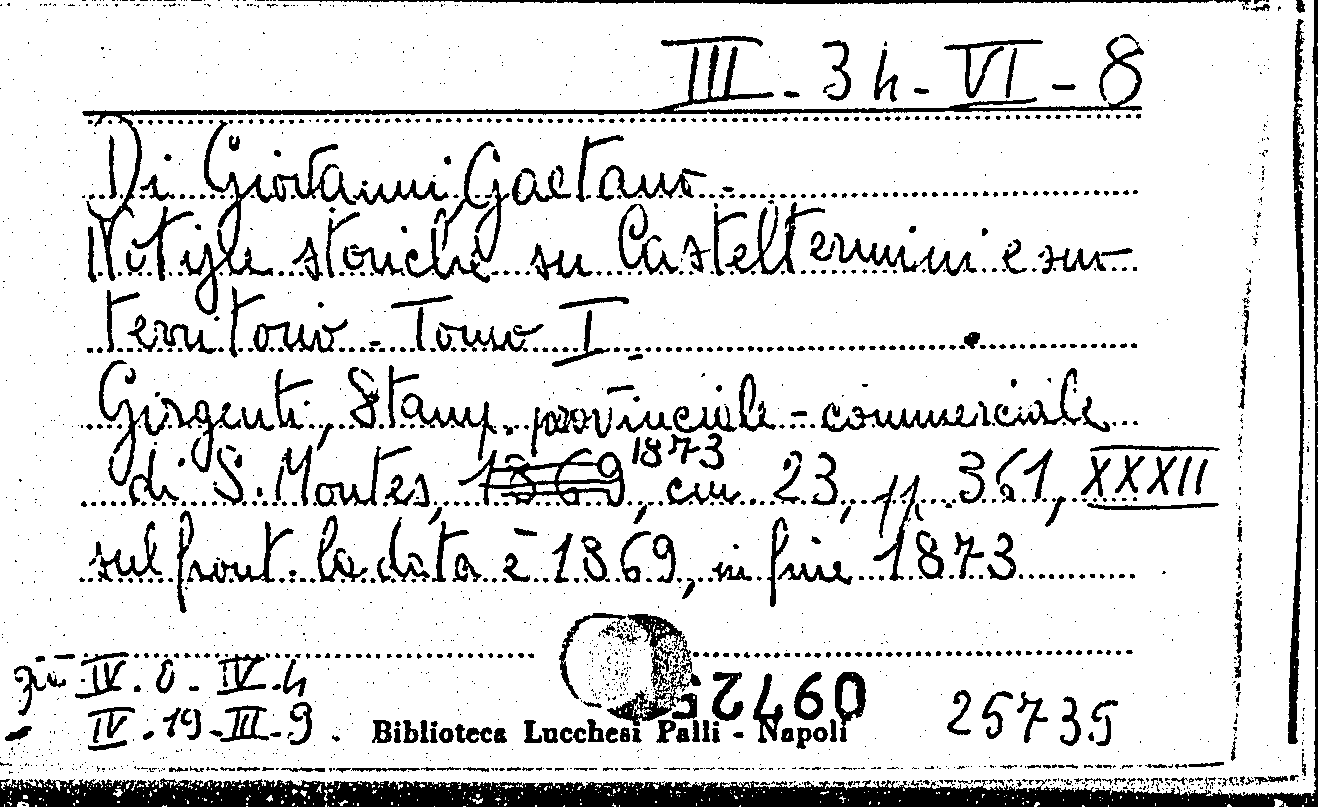 III - 34 - VI - 8
Di Giovanni, Gaetano -
Notizie storiche su Casteltermini e suo
territorio - Tomo I -
Girgenti, Stamp. provinciale - commerciale
di S. Montes, 1869, 1873, cm 23, pp. 361, XXXII
sul front. la data è 1869, in fine 1873
già IV. 0 - IV. 4
- IV - 19 - III - 9 .
Biblioteca Lucchesi Palli - Napoli
25735